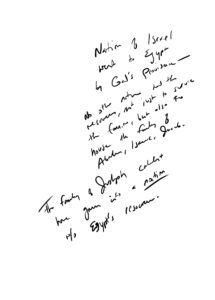 Nation of Israel
went to Egypt
by God's Provision —
No other nation had the
resources, not just to survive
the famine, but also to
house the family of
Abraham, Isaac, Jacob.
The family of Joseph couldn't
have grown into a nation
w/o Egypt's resources.